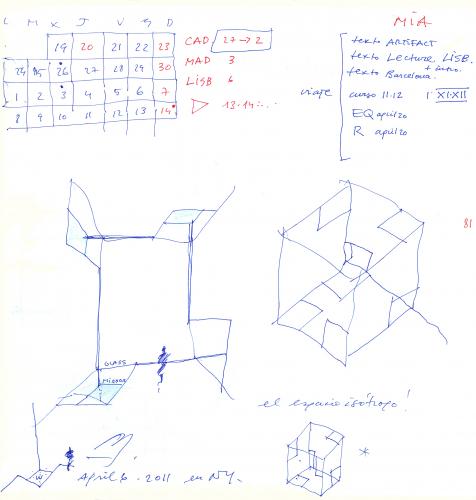 L M X J V S D
19 20 21 22 23
24 25 26 27 28 29 30
1 2 3 4 5 6 7
8 9 10 11 12 13 14
CAD 27 → 2
MAD 3
LISB 6
13-14...
MIA
texto ARTIFACT
texto Lecture, LISB.
+ intro.
texto Barcelona.
viaje
curso 11-12 1 XI-XII
EQ april 20
R april 20
81
GLASS
MIRROR
el espacio isótropo!
*
April 6 - 2011 en NY.